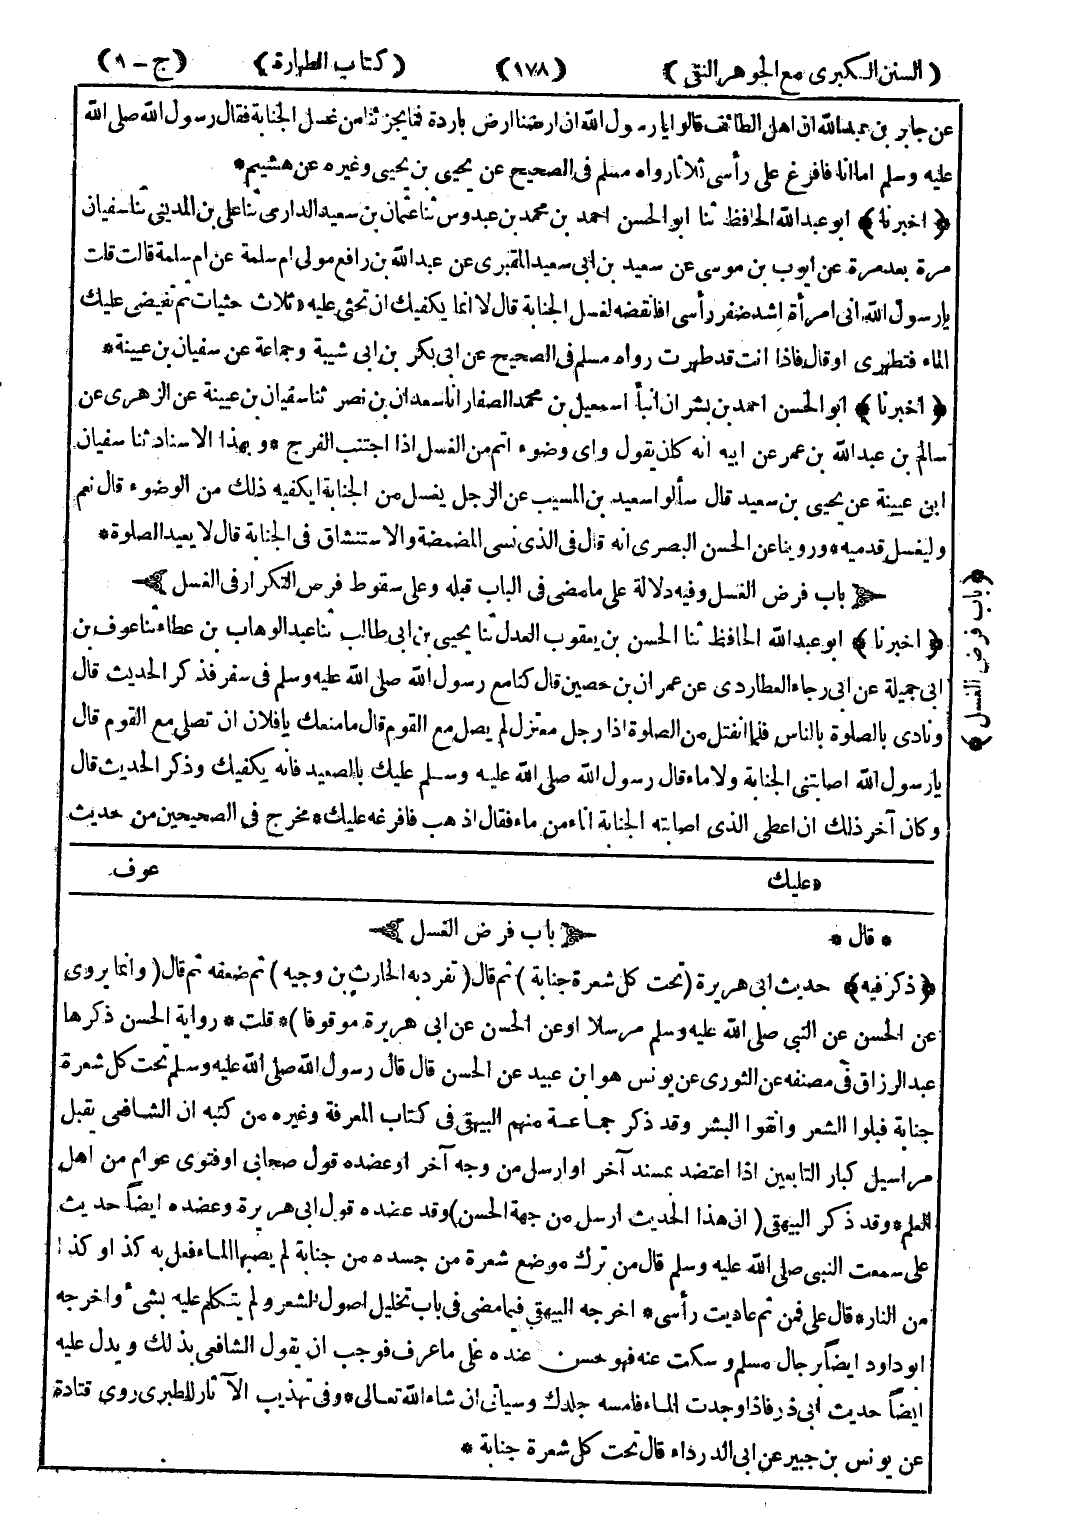 ﴿ السنن الكبرى مع الجوهر النقى ﴾ ﴿ ١٧٨ ﴾ ﴿ كتاب الطهارة ﴾ ﴿ ج - ١ ﴾
عن جابر بن عبد الله ان اهل الطائف قالوا يا رسول الله ان ارضنا ارض باردة فما يجزئنا من غسل الجنابة فقال رسول الله صلى الله
عليه وسلم اما انا فافرغ على رأسى ثلاثا رواه مسلم فى الصحيح عن يحيى بن يحيى وغيره عن هشيم *
﴿ اخبرنا ﴾ ابو عبد الله الحافظ ثنا ابو الحسن احمد بن محمد بن عبدوس ثنا عثمان بن سعيد الدارمى ثنا على بن المدينى ثنا سفيان
مرة بعد مرة عن ايوب بن موسى عن سعيد بن ابى سعيد المقبرى عن عبد الله بن رافع مولى ام سلمة عن ام سلمة قالت قلت
يا رسول الله انى امرأة اشد ضفر رأسى افانقضه لغسل الجنابة قال لا انما يكفيك ان تحثى عليه ثلاث حثيات ثم تفيضى عليك
الماء فتطهرى او قال فاذا انت قد طهرت رواه مسلم فى الصحيح عن ابى بكر بن ابى شيبة وجماعة عن سفيان بن عيينة *
﴿ اخبرنا ﴾ ابو الحسن احمد بن بشران انبأ اسمعيل بن محمد الصفار انا سعدان بن نصر ثنا سفيان بن عيينة عن الزهرى عن
سالم بن عبد الله بن عمر عن ابيه انه كان يقول واى وضوء اتم من الغسل اذا اجتنب الفرج * وبهذا الاسناد ثنا سفيان
ابن عيينة عن يحيى بن سعيد قال سألوا سعيد بن المسيب عن الرجل يغسل من الجنابة ايكفيه ذلك من الوضوء قال نعم
وليغسل قدميه * وروينا عن الحسن البصرى انه قال فى الذى نسى المضمضة والاستنشاق فى الجنابة قال لا يعيد الصلوة *
باب فرض الغسل وفيه دلالة على ما مضى فى الباب قبله وعلى سقوط فرض التكرار فى الغسل
﴿ باب فرض الغسل ﴾
﴿ اخبرنا ﴾ ابو عبد الله الحافظ ثنا الحسن بن يعقوب العدل ثنا يحيى بن ابى طالب ثنا عبد الوهاب بن عطاء ثنا عوف بن
ابى جميلة عن ابى رجاء العطاردى عن عمران بن حصين قال كنا مع رسول الله صلى الله عليه وسلم فى سفر فذكر الحديث قال
ونادى بالصلوة بالناس فلما انفتل من الصلوة اذا رجل معتزل لم يصل مع القوم قال ما منعك يا فلان ان تصلى مع القوم قال
يا رسول الله اصابتنى الجنابة ولا ماء قال رسول الله صلى الله عليه وسلم عليك بالصعيد فانه يكفيك وذكر الحديث قال
وكان آخر ذلك ان اعطى الذى اصابته الجنابة اناء من ماء فقال اذهب فافرغه عليك * مخرج فى الصحيحين من حديث
عليك عوف
* قال * باب فرض الغسل
﴿ ذكر فيه ﴾ حديث ابى هريرة ( تحت كل شعرة جنابة ) ثم قال ( تفرد به الحارث بن وجيه ) ثم ضعفه ثم قال ( وانما يروى
عن الحسن عن النبى صلى الله عليه وسلم مرسلا او عن الحسن عن ابى هريرة موقوفا ) * قلت * رواية الحسن ذكرها
عبد الرزاق فى مصنفه عن الثورى عن يونس هو ابن عبيد عن الحسن قال قال رسول الله صلى الله عليه وسلم تحت كل شعرة
جنابة فبلوا الشعر وانقوا البشر وقد ذكر جماعة منهم البيهقى فى كتاب المعرفة وغيره من كتبه ان الشافعى يقبل
مراسيل كبار التابعين اذا اعتضد بمسند آخر او ارسل من وجه آخر او عضده قول صحابى او فتوى عوام من اهل
العلم * وقد ذكر البيهقى ( ان هذا الحديث ارسل من جهة الحسن ) وقد عضده قول ابى هريرة وعضده ايضاً حديث
على سمعت النبى صلى الله عليه وسلم قال من ترك موضع شعرة من جسده من جنابة لم يصبها الماء فعل به كذا وكذا
من النار * قال على فمن ثم عاديت رأسى * اخرجه البيهقى فيما مضى فى باب تخليل اصول الشعر ولم يتكلم عليه بشىء واخرجه
ابو داود ايضاً برجال مسلم وسكت عنه فهو حسن عنده على ما عرف فوجب ان يقول الشافعى بذلك ويدل عليه
ايضاً حديث ابى ذر فاذا وجدت الماء فامسه جلدك وسيأتى ان شاء الله تعالى * وفى تهذيب الآثار للطبرى روى قتادة
عن يونس بن جبير عن ابى الدرداء قال تحت كل شعرة جنابة *